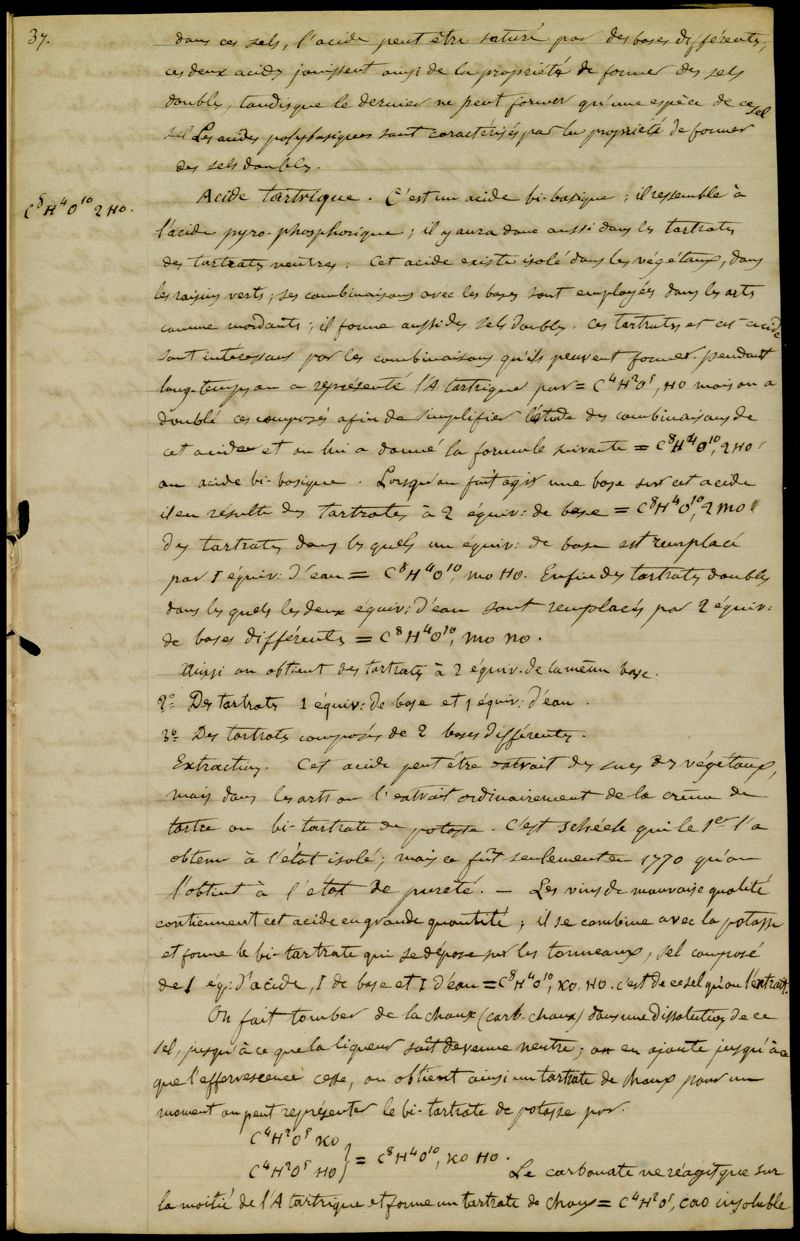 37.
dans ces sels, l'acide peut être saturé par des bases différentes,
ces deux acides jouissent ainsi de la propriété de former des sels
doubles, tandisque le dernier ne peut former qu'une espèce de ce sel
Les acides polybasiques sont caractérisés par la propriété de former
des sels doubles.
C⁸H⁴O¹⁰ 2HO.
Acide tartrique. C'est un acide bi-basique ; il ressemble à
l'acide pyro-phosphorique ; il y aura donc aussi dans les tartrates
des tartrates neutres. Cet acide existe isolé dans les végétaux, dans
les raisins verts ; ses combinaisons avec les bases sont employées dans les arts
comme mordants ; il forme aussi des sels doubles. Ces tartrates et cet acide
sont intéressans par les combinaisons qu'ils peuvent former. pendant
long-temps on a représenté l'A tartrique par = C⁴H²O⁵, HO mais on a
doublé ces composés afin de simplifier l'étude des combinaisons de
cet acide et on lui a donné la formule suivante = C⁸H⁴O¹⁰, 2HO
ou acide bi-basique. Lorsqu'on fait agir une base sur cet acide
il en résulte des tartrates à 2 équiv: de base = C⁸H⁴O¹⁰, 2MO
Des tartrates dans lesquels un équiv: de base est remplacé
par 1 équiv: d'eau = C⁸H⁴O¹⁰, MO HO. Enfin des tartrates doubles
dans lesquels les deux équiv: d'eau sont remplacés par 2 équiv:
de bases différentes = C⁸H⁴O¹⁰, MO NO.
Ainsi on obtient des tartrates à 2 équiv. de la même base.
2° Des tartrates 1 équiv: de base et 1 équiv: d'eau.
3° Des tartrates composés de 2 bases différentes.
Extraction. Cet acide peut être extrait des sucs des végétaux,
mais dans les arts on l'extrait ordinairement de la crême de
tartre ou bi-tartrate de potasse. C'est Schéele qui le 1er l'a
obtenu à l'état isolé ; mais ce fût seulement en 1770 qu'on
l'obtint à l'état de pureté. — Les vins de mauvaise qualité
contiennent cet acide en grande quantité ; il se combine avec la potasse
et forme le bi-tartrate qui se dépose sur les tonneaux, sel composé
de 1 éq: d'acide, 1 de base et 1 d'eau = C⁸H⁴O¹⁰, KO, HO. c'est de ce sel qu'on l'extrait.
On fait tomber de la chaux (carb. chaux) dans une dissolution de ce
sel, jusqu'à ce que la liqueur soit devenue neutre ; on en ajoute jusqu'à ce
que l'effervescence cesse, on obtient ainsi un tartrate de chaux pour un
moment on peut représenter le bi-tartrate de potasse par.
C⁴H²O⁵ KO
C⁴H²O⁵ HO } = C⁸H⁴O¹⁰, KO HO.
Le carbonate ne réagit que sur
la moitié de l'A tartrique et forme un tartrate de chaux = C⁴H²O⁵, CaO insoluble